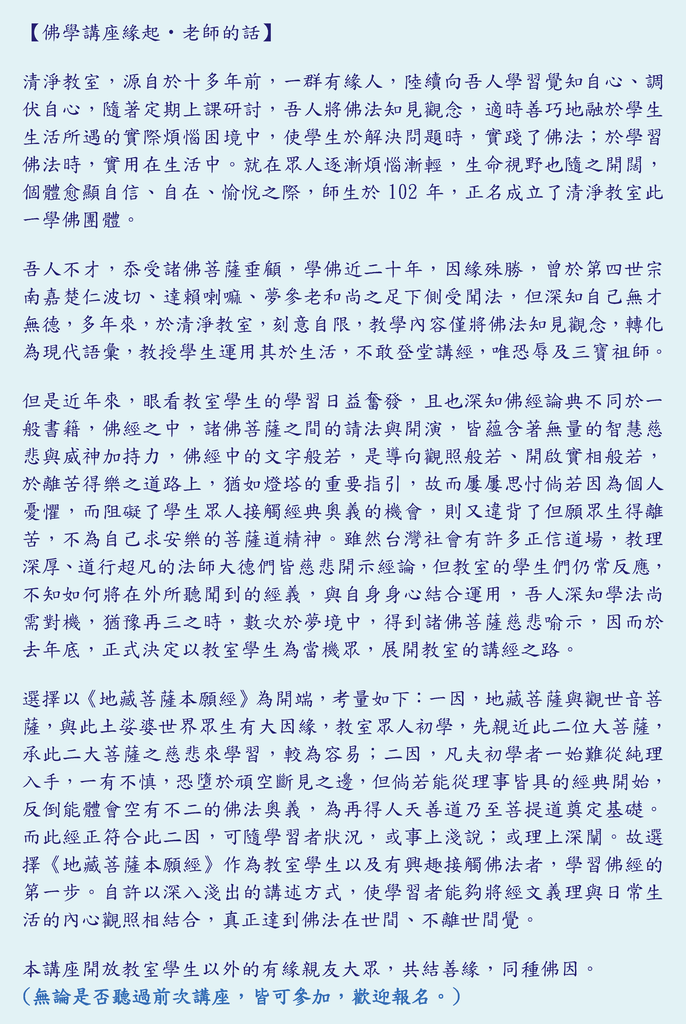 【佛學講座緣起‧老師的話】
清淨教室，源自於十多年前，一群有緣人，陸續向吾人學習覺知自心、調
伏自心，隨著定期上課研討，吾人將佛法知見觀念，適時善巧地融於學生
生活所遇的實際煩惱困境中，使學生於解決問題時，實踐了佛法；於學習
佛法時，實用在生活中。就在眾人逐漸煩惱漸輕，生命視野也隨之開闊，
個體愈顯自信、自在、愉悅之際，師生於 102 年，正名成立了清淨教室此
一學佛團體。
吾人不才，忝受諸佛菩薩垂顧，學佛近二十年，因緣殊勝，曾於第四世宗
南嘉楚仁波切、達賴喇嘛、夢參老和尚之足下側受聞法，但深知自己無才
無德，多年來，於清淨教室，刻意自限，教學內容僅將佛法知見觀念，轉化
為現代語彙，教授學生運用其於生活，不敢登堂講經，唯恐辱及三寶祖師。
但是近年來，眼看教室學生的學習日益奮發，且也深知佛經論典不同於一
般書籍，佛經之中，諸佛菩薩之間的請法與開演，皆蘊含著無量的智慧慈
悲與威神加持力，佛經中的文字般若，是導向觀照般若、開啟實相般若，
於離苦得樂之道路上，猶如燈塔的重要指引，故而屢屢思忖倘若因為個人
憂懼，而阻礙了學生眾人接觸經典奧義的機會，則又違背了但願眾生得離
苦，不為自己求安樂的菩薩道精神。雖然台灣社會有許多正信道場，教理
深厚、道行超凡的法師大德們皆慈悲開示經論，但教室的學生們仍常反應，
不知如何將在外所聽聞到的經義，與自身身心結合運用，吾人深知學法尚
需對機，猶豫再三之時，數次於夢境中，得到諸佛菩薩慈悲喻示，因而於
去年底，正式決定以教室學生為當機眾，展開教室的講經之路。
選擇以《地藏菩薩本願經》為開端，考量如下：一因，地藏菩薩與觀世音菩
薩，與此土娑婆世界眾生有大因緣，教室眾人初學，先親近此二位大菩薩，
承此二大菩薩之慈悲來學習，較為容易；二因，凡夫初學者一始難從純理
入手，一有不慎，恐墮於頑空斷見之邊，但倘若能從理事皆具的經典開始，
反倒能體會空有不二的佛法奧義，為再得人天善道乃至菩提道奠定基礎。
而此經正符合此二因，可隨學習者狀況，或事上淺說；或理上深闡。故選
擇《地藏菩薩本願經》作為教室學生以及有興趣接觸佛法者，學習佛經的
第一步。自許以深入淺出的講述方式，使學習者能夠將經文義理與日常生
活的內心觀照相結合，真正達到佛法在世間、不離世間覺。
本講座開放教室學生以外的有緣親友大眾，共結善緣，同種佛因。
(無論是否聽過前次講座，皆可參加，歡迎報名。)